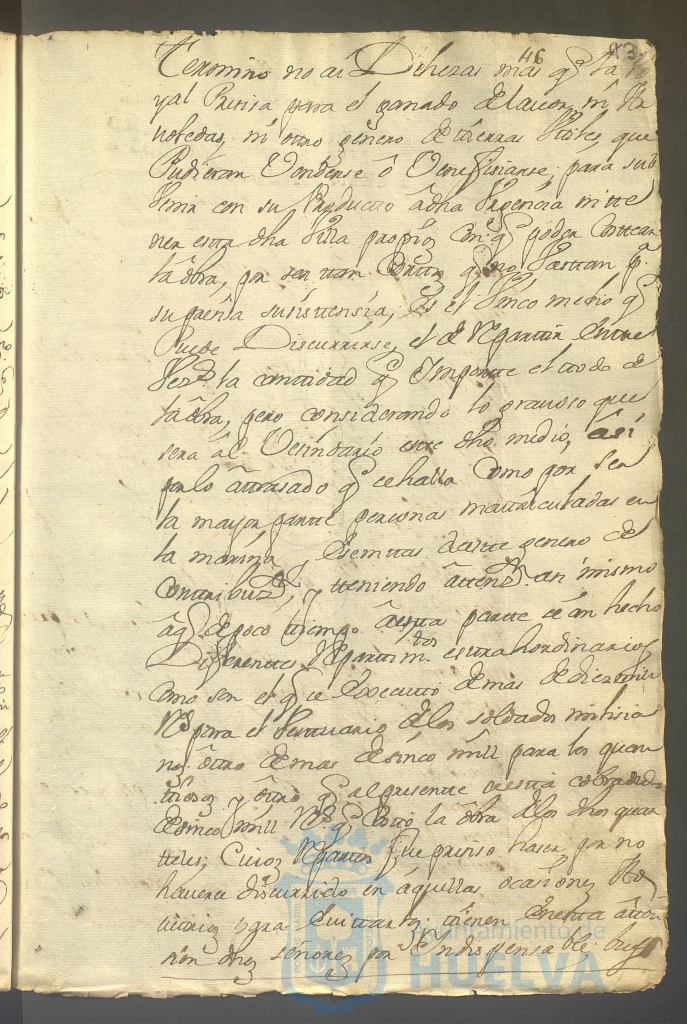 46 43
termino no ai Dehezas mas qe la Re
yal Presisa para el ganado de labor, ni Ra
ni otro genero de tierras utiles, que
Pudieran Venderse ô Veneficiarse, para sub
venir con su Producto âdha Urgencia ni tie
nen esta dha Villa propios con qe poder Costear
la ôbra, por ser tan Cortos qe no bastan pa
su presisa susistensia, es el Unico medio qe
Puede Discurrirse, el de Repartir entre
Vezos la cantidad qe Importe el todo de
la ôbra, pero considerando lo gravoso que
sera âl Vesindario este dho medio, âsi
por lo âtrasado qe se halla Como por ser
la mayor parte personas matriculadas en
la marina y Esemptas deeste genero de
Contribuzn, y tteniendo âttenzn asi mismo
âqe de poco tiempo âesta parte se án hecho
Diferentes Repartimtos extrahordinarios
Como son el qe se Executo de mas de diez mill
Rs para el Vestuario de los soldados milisia
nos ôtro de mas de sinco mill para los quar
teles y ôtro qe al presente se esta cobrando
de sinco mill Rs qe Costo la ôbra de los dhos quar
teles, Cuios Repartos fue presiso haser por no
haverse discurrido en âquellas ocasiones
para Evittarlo; tienen
dhos señores por Indispensable
Ayuntamiento de
HUELVA